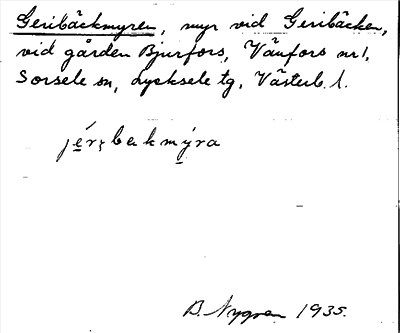 Geribäckmyren, myr vid Geribäcken,
vid gården Bjurfors, Vänfors nr 1,
Sorsele sn, Lycksele tg, Västerb. l.
jérıbakmýra
B. Nygren 1935.